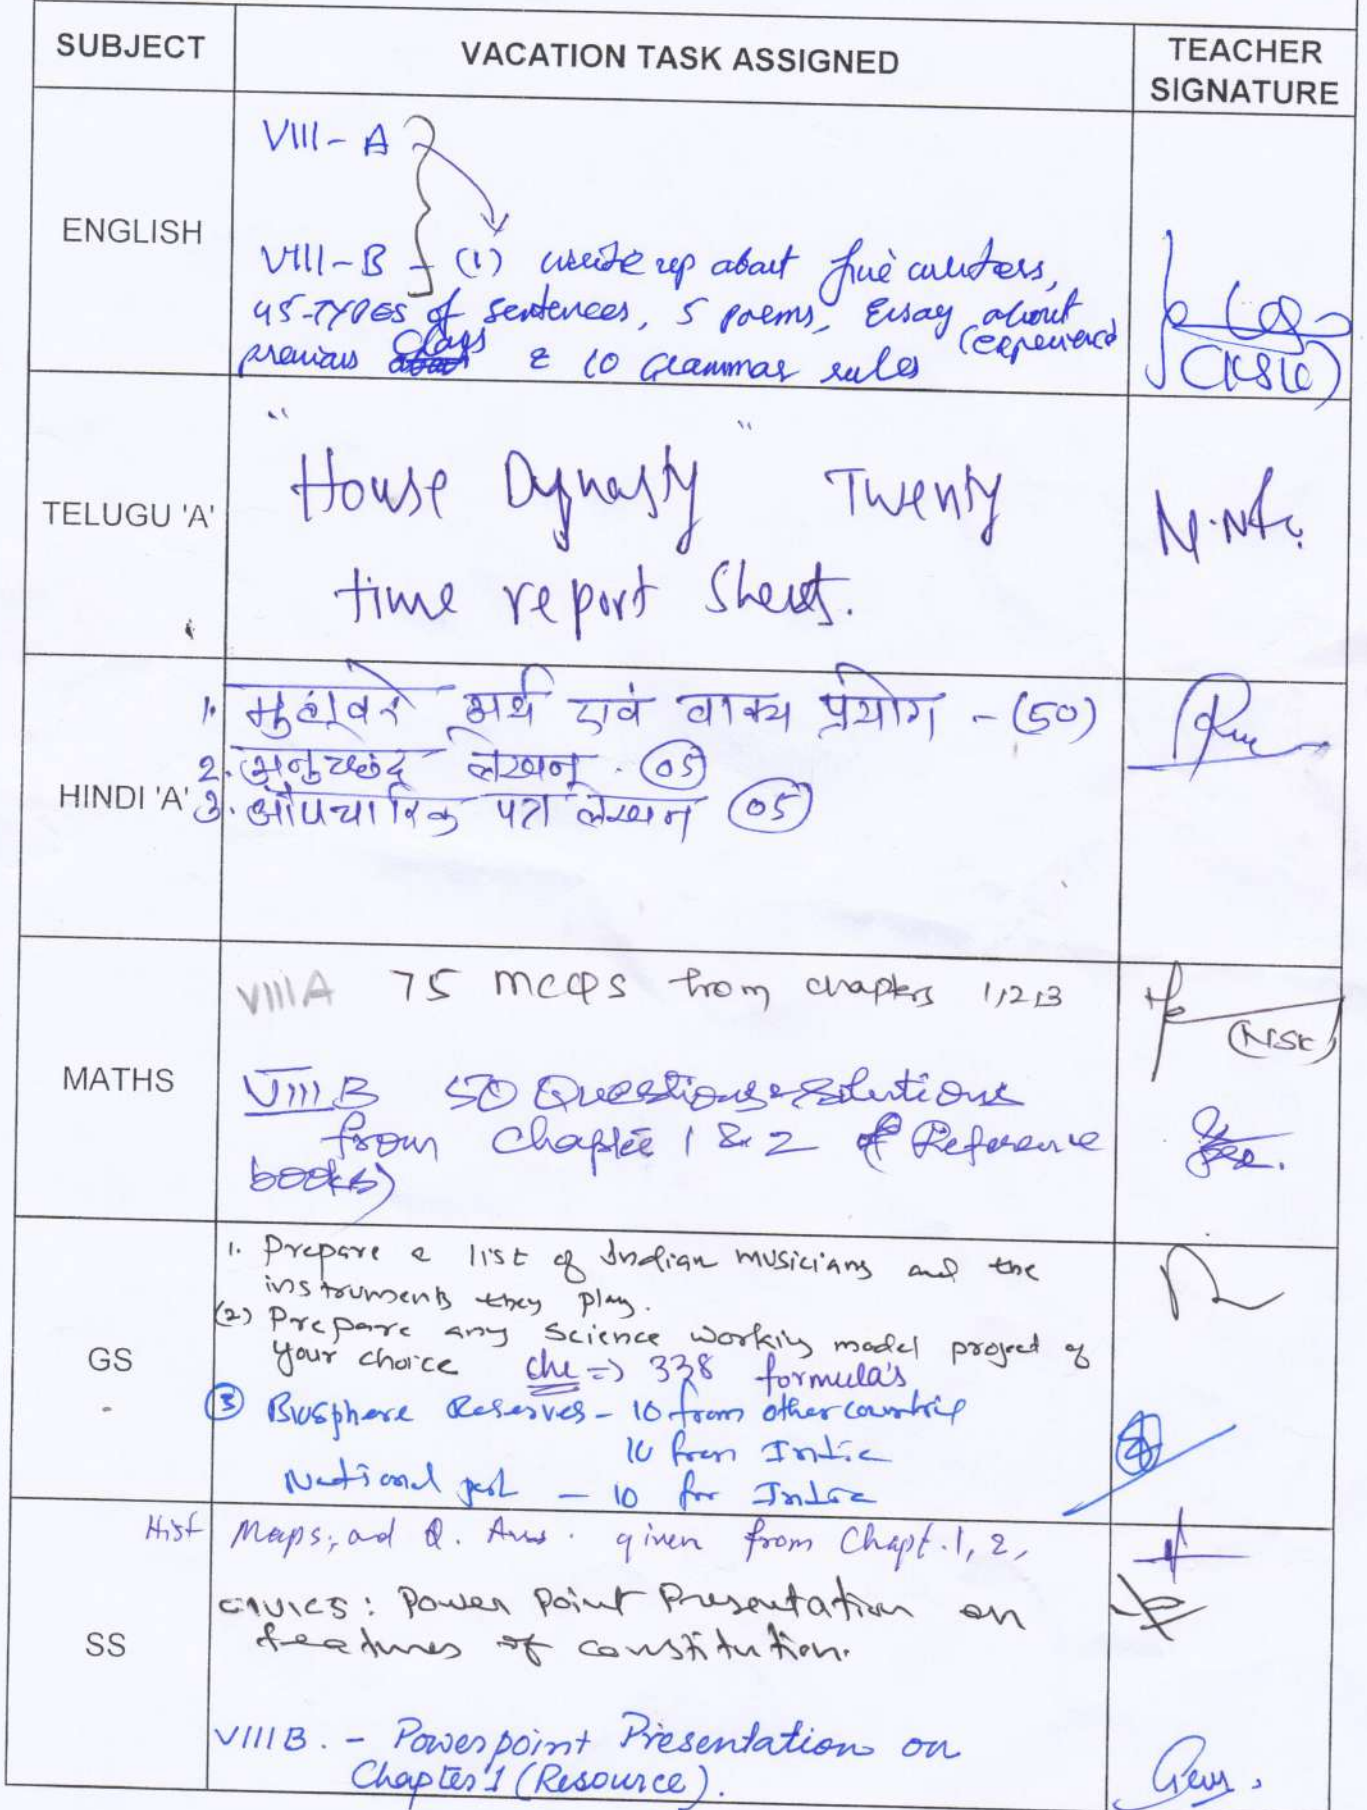 SUBJECT VACATION TASK ASSIGNED TEACHER SIGNATURE
ENGLISH
VIII - A
VIII - B - (1) write up about five writers,
45-TYPES of sentences, 5 poems, Essay about
previous days (experience)
& 10 Grammar rules
(KSK)
TELUGU 'A'
"House Dynasty" Twenty
time report sheets.
HINDI 'A'
1. मुहावरे अर्थ एवं वाक्य प्रयोग - (50)
2. अनुच्छेद लेखन - 05
3. औपचारिक पत्र लेखन 05
MATHS
VIII A 75 MCQS from chapters 1,2,3
(NSK)
VIII B 50 Questions & Solutions
from Chapter 1 & 2 of Reference
books)
GS
1. Prepare a list of Indian musicians and the
instruments they play.
(2) Prepare any science working model project of
your choice che => 338 formula's
3 Biosphere Reserves - 10 from other countries
10 from India
National park - 10 for India
SS
Hist Maps, ad Q. Ans. given from Chapt. 1, 2,
CIVICS: Power Point Presentation on
features of constitution.
VIII B. - Powerpoint Presentation on
Chapter 1 (Resource).